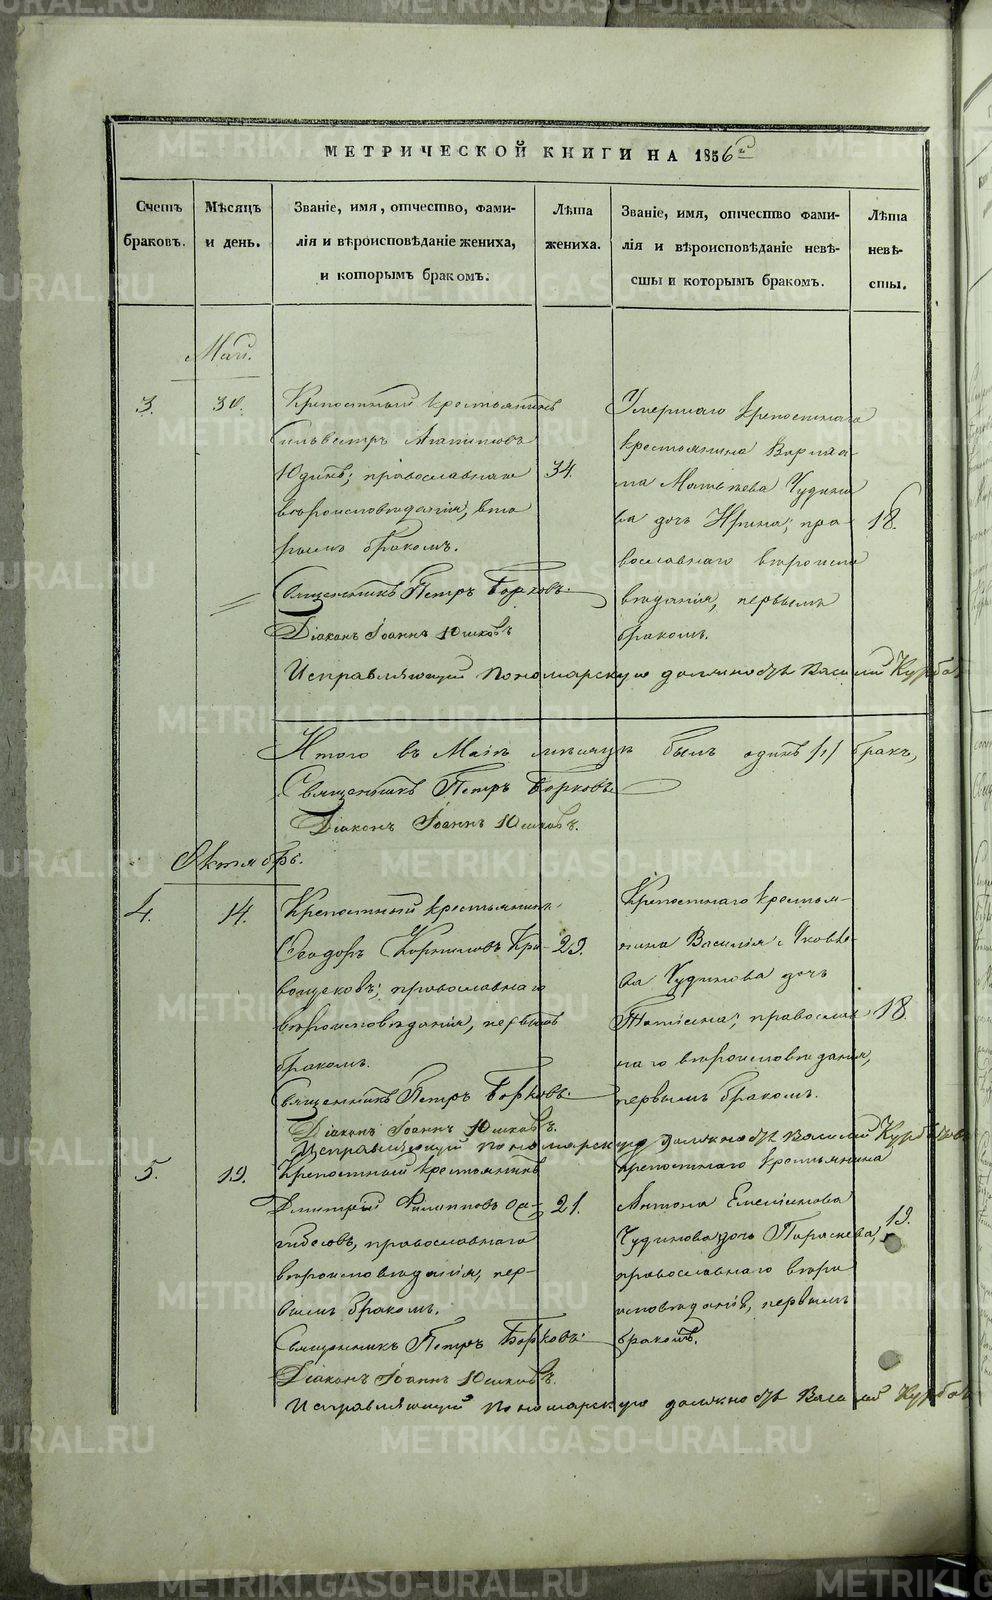 МЕТРИЧЕСКОЙ КНИГИ НА 1856й
Счетъ браковъ.
Мѣсяцъ и день.
Званіе, имя, отчество, фами-
лія и вѣроисповѣданіе жениха,
и которымъ бракомъ.
Лѣта
жениха.
Званіе, имя, отчество фами-
лія и вѣроисповѣданіе невѣ-
сты и которымъ бракомъ.
Лѣта
невѣ-
сты.
Май.
3.
30.
Крепостный крестьянинъ
Сильвестръ Агаповъ
Юдинъ; православнаго
вѣроисповѣданія, вто
рымъ бракомъ.
Священникъ Петръ Борковъ.
Діаконъ Іоаннъ Юшковъ
34.
Умершаго крепостнаго
крестьянина Варлаа-
ма Матвѣева Чудино
ва дочь Ирина; пра-
вославнаго вѣроиспо
вѣданія, первымъ
бракомъ.
18.
Исправляющій пономарскую должность Василій Курбат
Итого въ Маѣ мѣсяцѣ былъ одинъ /1/ бракъ,
Священникъ Петръ Борковъ.
Діаконъ Іоаннъ Юшковъ.
Октябрь.
4.
14.
Крепостный крестьянинъ
Ѳеодоръ Корниловъ Кри-
вощековъ; православнаго
вѣроисповѣданія, первымъ
бракомъ.
Священникъ Петръ Борковъ.
Діаконъ Іоаннъ Юшковъ.
23.
Крепостнаго крестья-
нина Василія Яковле
ва Чудинова дочь
Татіана; православ
наго вѣроисповѣданія,
первымъ бракомъ.
18.
Исправляющій пономарскую должность Василій Курбатовъ
5.
19.
Крепостный крестьянинъ
Дмитрій Филипповъ
православнаго
вѣроисповѣданія, пер-
вымъ бракомъ.
Священникъ Петръ Борковъ.
Діаконъ Іоаннъ Юшковъ.
21.
Крепостнаго крестьянина
Антона Емельянова
Чудинова дочь Параскева,
православнаго вѣро
исповѣданія, первымъ
бракомъ.
19.
Исправляющій пономарскую должность Василій Курбат
METRIKI.GASO-URAL.RU